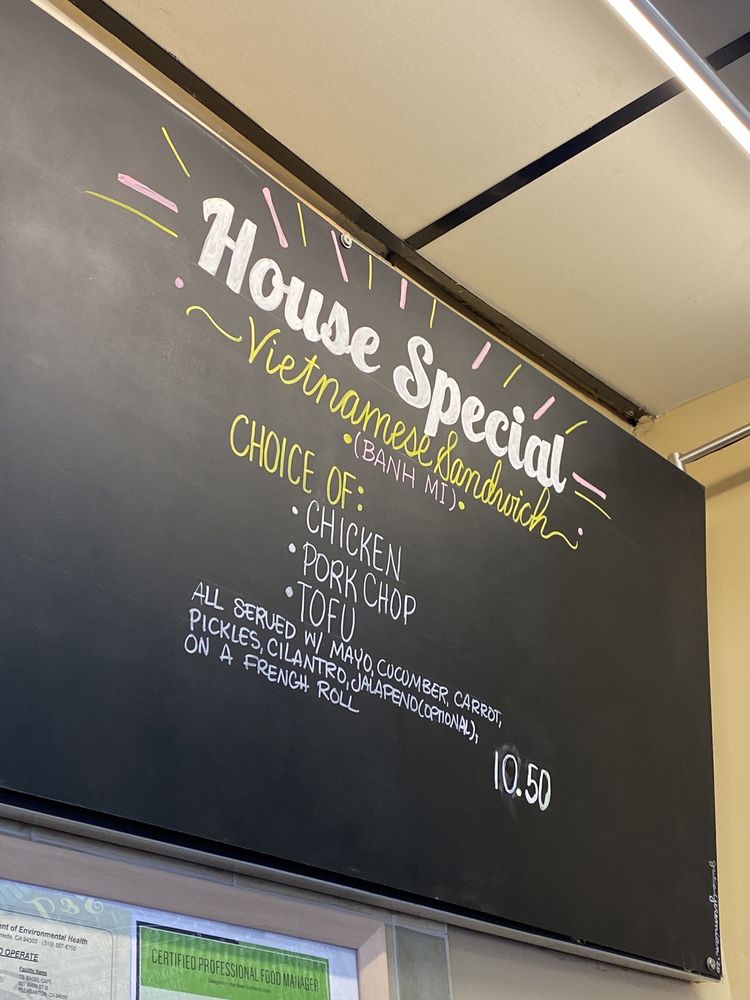 House Special
Vietnamese Sandwich
(BANH MI)
CHOICE OF:
• CHICKEN
• PORK CHOP
• TOFU
ALL SERVED W/ MAYO, CUCUMBER, CARROT,
PICKLES, CILANTRO, JALAPENO(OPTIONAL),
ON A FRENCH ROLL
10.50
nt of Environmental Health
CA 94502 - (510) 567-6700
O OPERATE
Facility Name
TB BAGEL CAFE
PLEASANTON, CA 94566
CERTIFIED PROFESSIONAL FOOD MANAGER